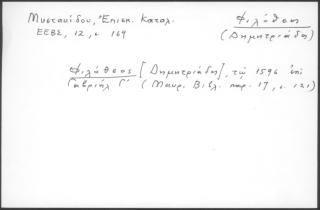 Μυστακίδου, Ἐπισκ. Καταλ.
ΕΕΒΣ, 12, σ. 169
Φιλόθεος
(Δημητριάδης)
Φιλόθεος [Δημητριάδης], τῷ 1596 ἐπὶ
Γαβριὴλ Γ΄ (Μαυρ. Βιβλ. παρ. 17, σ. 121)